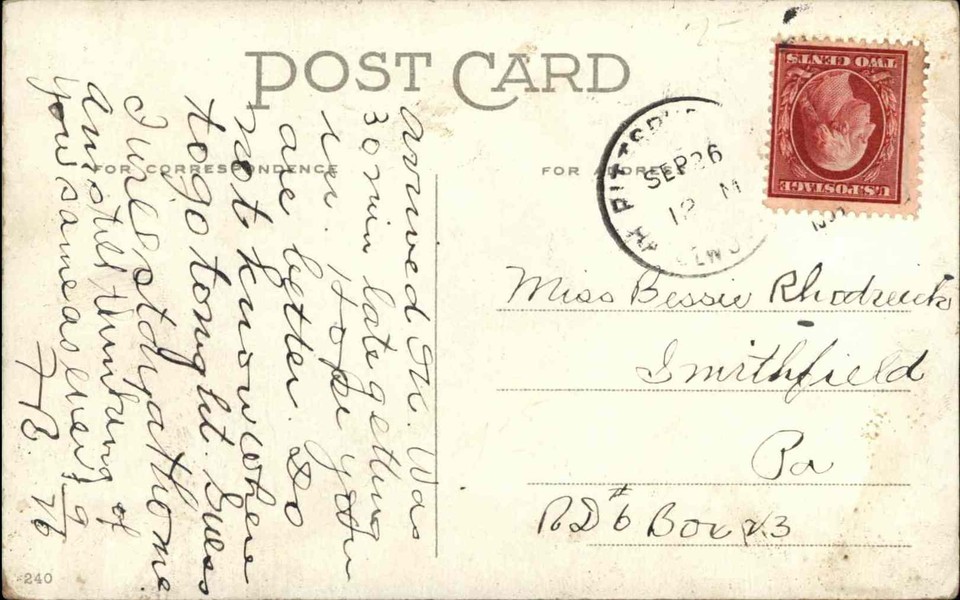 POST CARD
FOR CORRESPONDENCE
FOR ADDRESS
Arrived OK. Was
30 min late getting
in. Hope you
are better. Do
not know where
to go tonight. Guess
I will stay at home.
Am still thinking of
you same as ever.
PITTSB
SEP 26
12 M
U.S. POSTAGE
TWO CENTS
Miss Bessie Rhodrick
Smithfield
Pa
RD # 6 Box 23
240